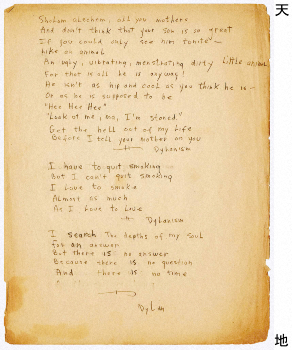 Sholom alechem, all you mothers
And don't think that your son is so great
If you could only see him tonite -
Like an animal
An ugly, vibrating, menstrating dirty little animal
For that is all he is anyway!
He isn't as hip and cool as you think he is -
Or as he is supposed to be
"Hee Hee Hee"
"Look at me, ma, I'm stoned."
Get the hell out of my life
Before I tell your mother on you
Dylanism
I have to quit smoking
But I can't quit smoking
I love to smoke
Almost as much
As I love to love
Dylanism
I search the depths of my soul
for an answer
But there is no answer
Because there is no question
And there is no time
Dylan
天
地